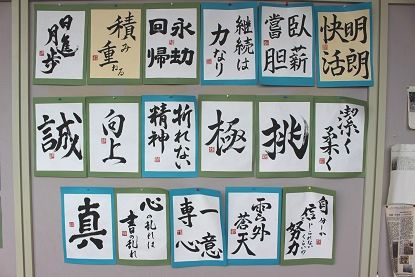 日進
月歩
積み
重ねる
永劫
回帰
継続は
力なり
臥薪
嘗胆
明朗
快活
誠
向上
折れない
精神
極
挑
潔く
柔く
真
心の乱れは
書の乱れ
一意
専心
雲外
蒼天
自分が
信じられない
くらいの
努力